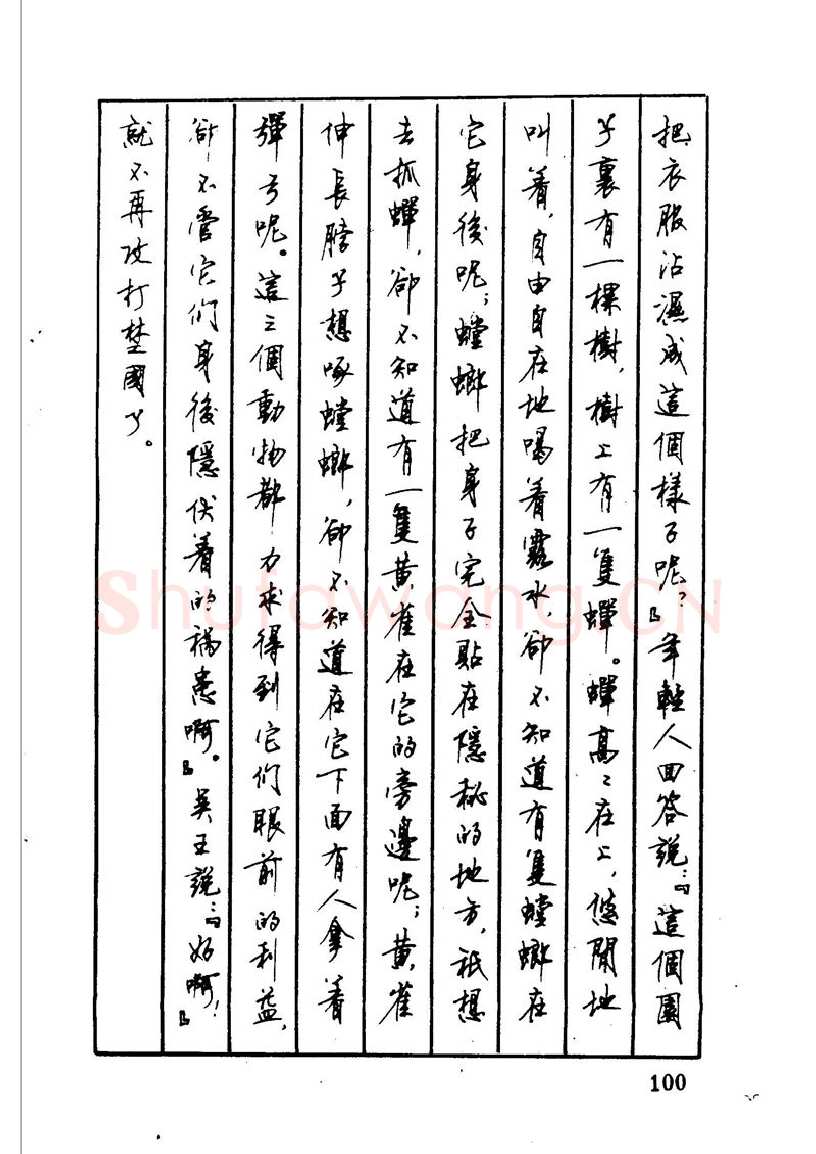 把衣服沾濕成這個樣子呢？』年輕人回答說：『這個園
子裏有一棵樹，樹上有一隻蟬。蟬高々在上，悠閒地
叫着，自由自在地喝着露水，卻不知道有隻螳螂在
它身後呢；螳螂把身子完全貼在隱秘的地方，祇想
去抓蟬，卻不知道有一隻黃雀在它的旁邊呢；黃雀
伸長脖子想啄螳螂，卻不知道在它下面有人拿着
彈弓呢。這三個動物都力求得到它們眼前的利益，
卻不管它們身後隱伏着的禍患啊。』吳王說：『好啊！』
就不再攻打楚國了。
100
Shufawang.CN